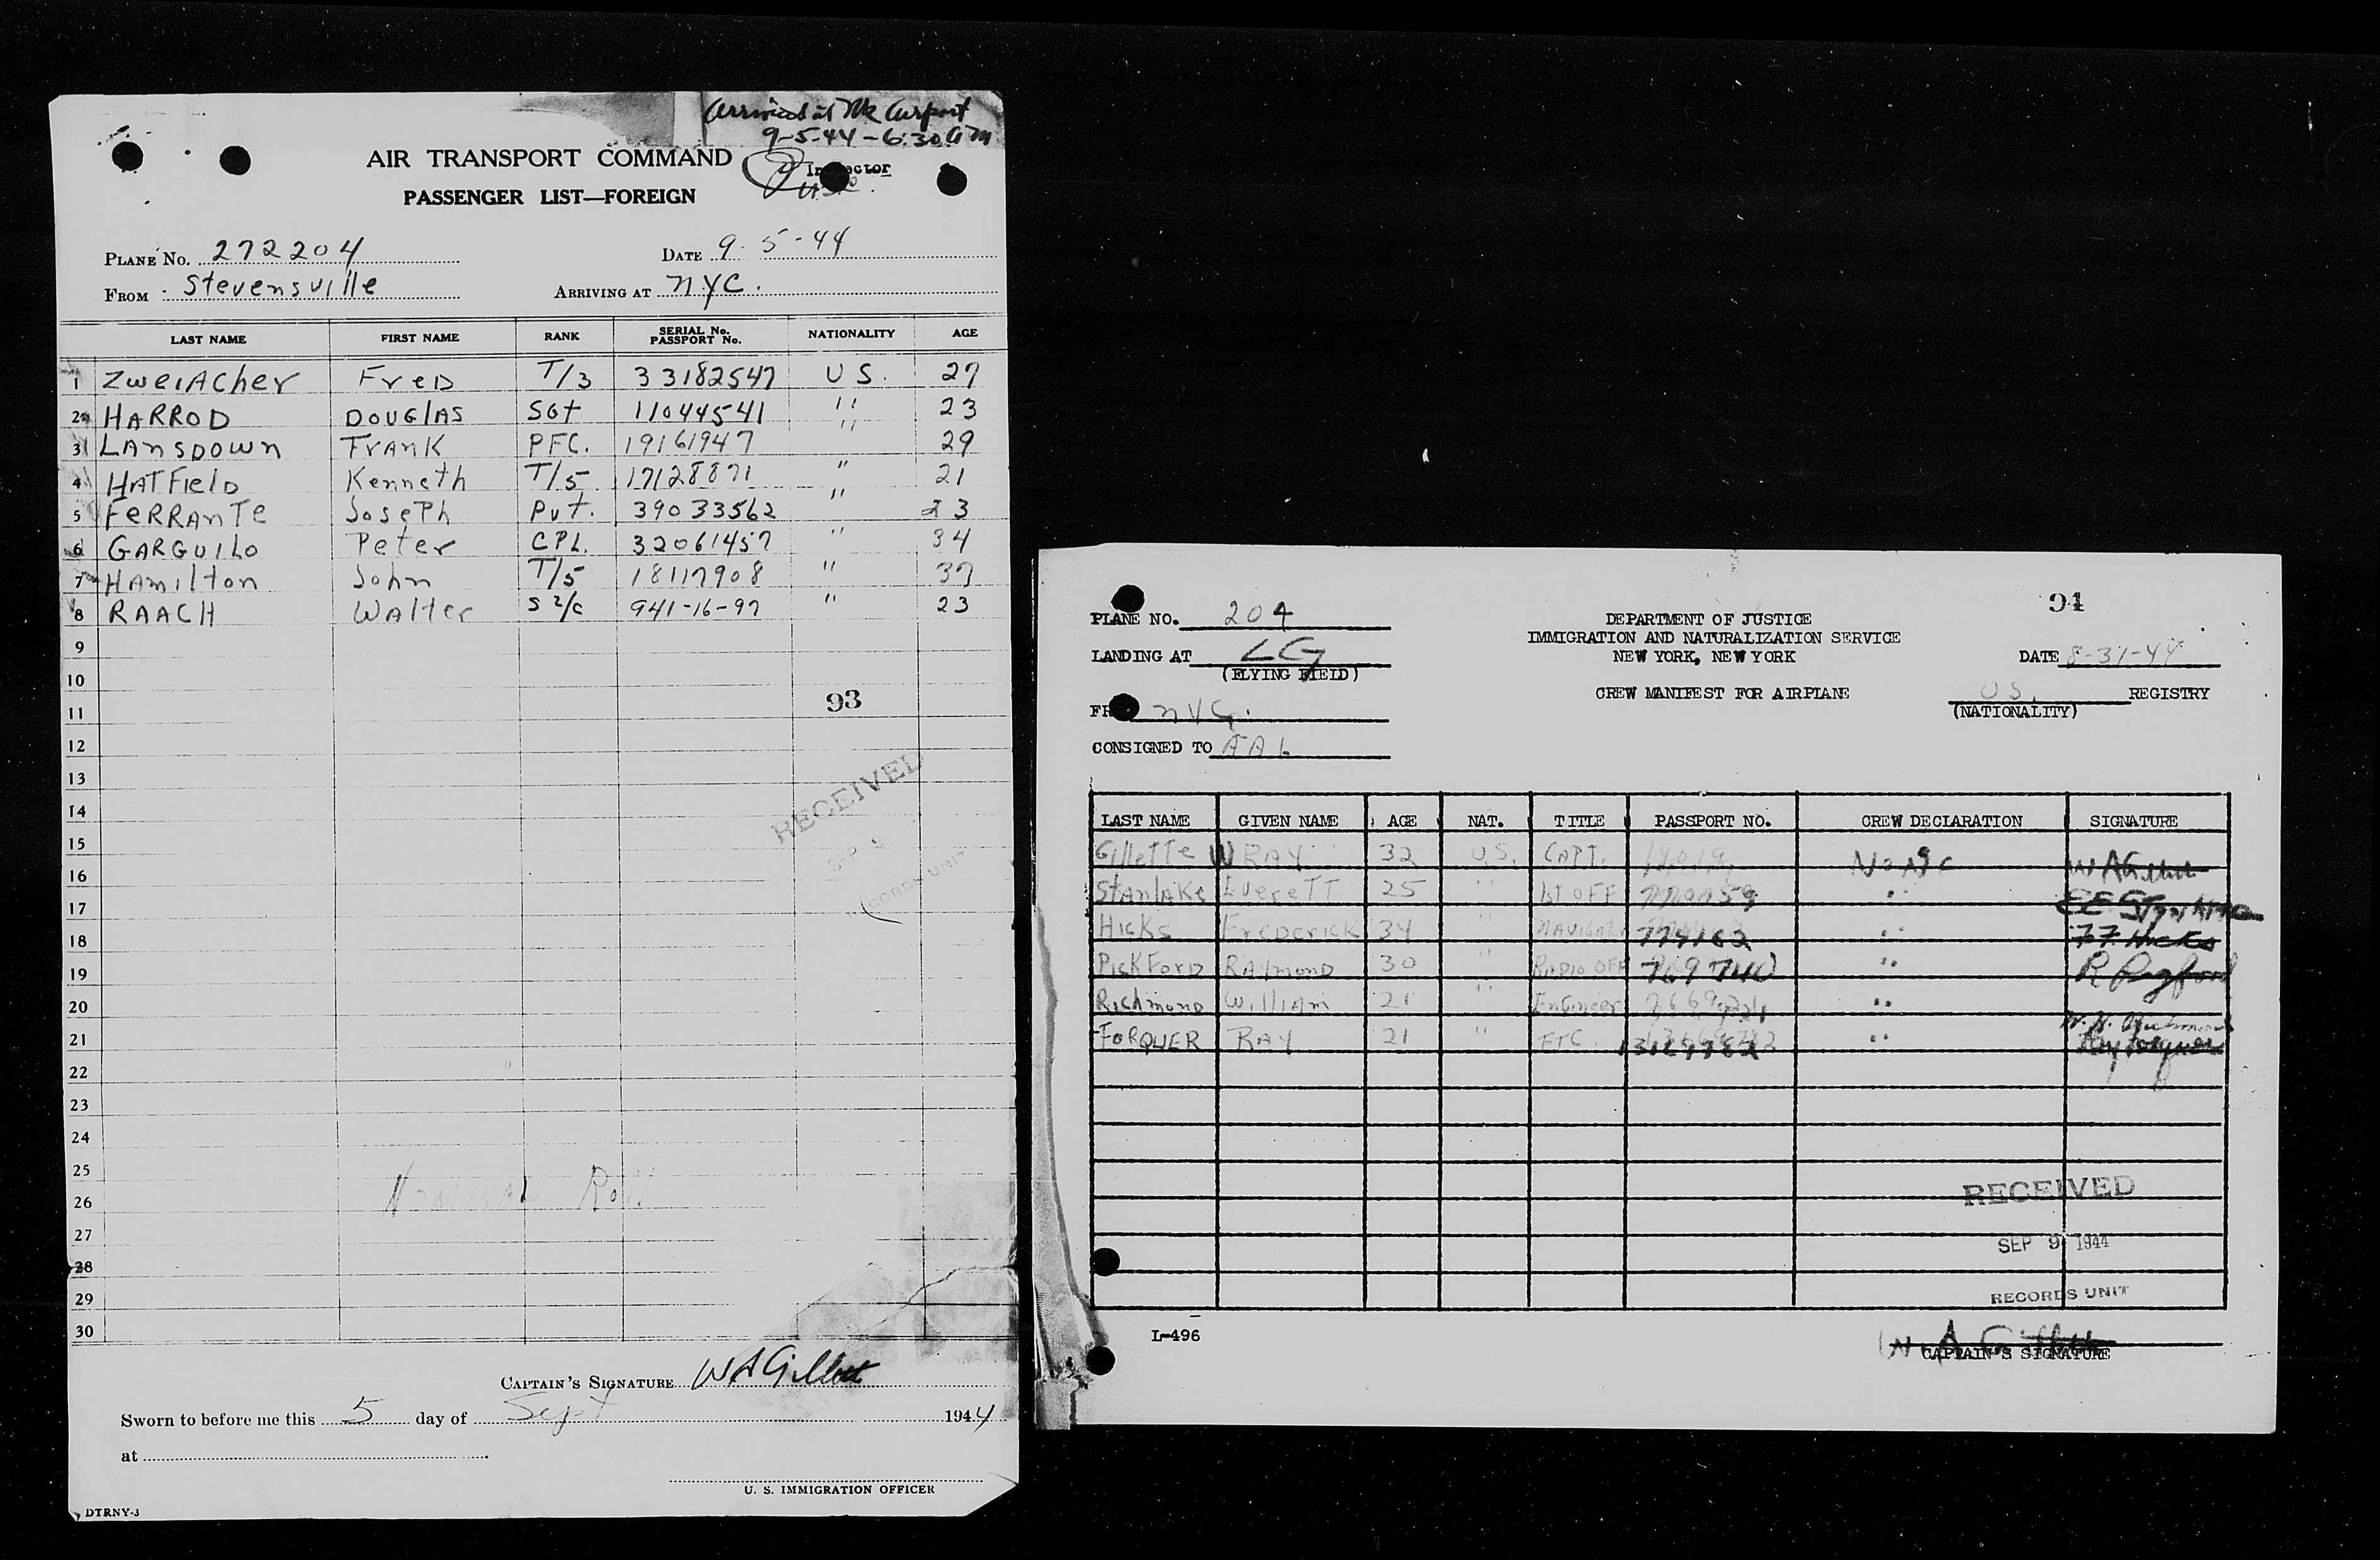 Arrived at Mc Airport
9-5-44-6:30 am
Inspector
AIR TRANSPORT COMMAND
PASSENGER LIST—FOREIGN
PLANE No. 272204 DATE 9-5-44
FROM Stevensville ARRIVING AT NYC.
LAST NAME FIRST NAME RANK SERIAL No. PASSPORT No. NATIONALITY AGE
1 ZweiAcher FreD T/3 33182547 US. 27
2 HARROD DOUGlAS SGt 11044541 " 23
3 LAnSDOwn FrAnK PFC. 19161947 " 29
4 HATFielD Kenneth T/5 17128871 " 21
5 FeRRAnTe JosePh Pvt. 39033562 " 23
6 GARGUILO Peter CPL. 32061457 " 34
7 HAmilton John T/5 18117908 " 37
8 RAACH WAlter S 2/c 941-16-97 " 23
9
10
11
93
12
13
14
RECEIVED
15
16
SEP
17
RECORDS UNIT
18
19
20
21
22
23
24
25
26
Roll
27
28
29
30
CAPTAIN'S SIGNATURE WAGillette
Sworn to before me this 5 day of Sept 1944
at
U. S. IMMIGRATION OFFICER
DTRNY-3
94
PLANE NO. 204
DEPARTMENT OF JUSTICE
IMMIGRATION AND NATURALIZATION SERVICE
LANDING AT LG
NEW YORK, NEW YORK
DATE 8-31-44
(FLYING FIELD)
CREW MANIFEST FOR AIRPLANE
US. REGISTRY
(NATIONALITY)
NYC.
CONSIGNED TO AAL
LAST NAME GIVEN NAME AGE NAT. TITLE PASSPORT NO. CREW DECLARATION SIGNATURE
GilleTTe W RAY 32 U.S. CAPT. None WAGillette
StanlAKe EvereTT 25 " 1st OFF " EE Stanlake
HicKs FreDericK 34 " NAVigator 774162 " F.F. Hicks
PicKForD RAymonD 30 " RADio OFF 769740 " R Pickford
RichmonD WilliAm 21 " EnGineer " W. H. Richmond
FORQUER RAY 21 " FTC. " Ray Forquer
RECEIVED
SEP 9 1944
RECORDS UNIT
L-496
W A Gillette
CAPTAIN'S SIGNATURE